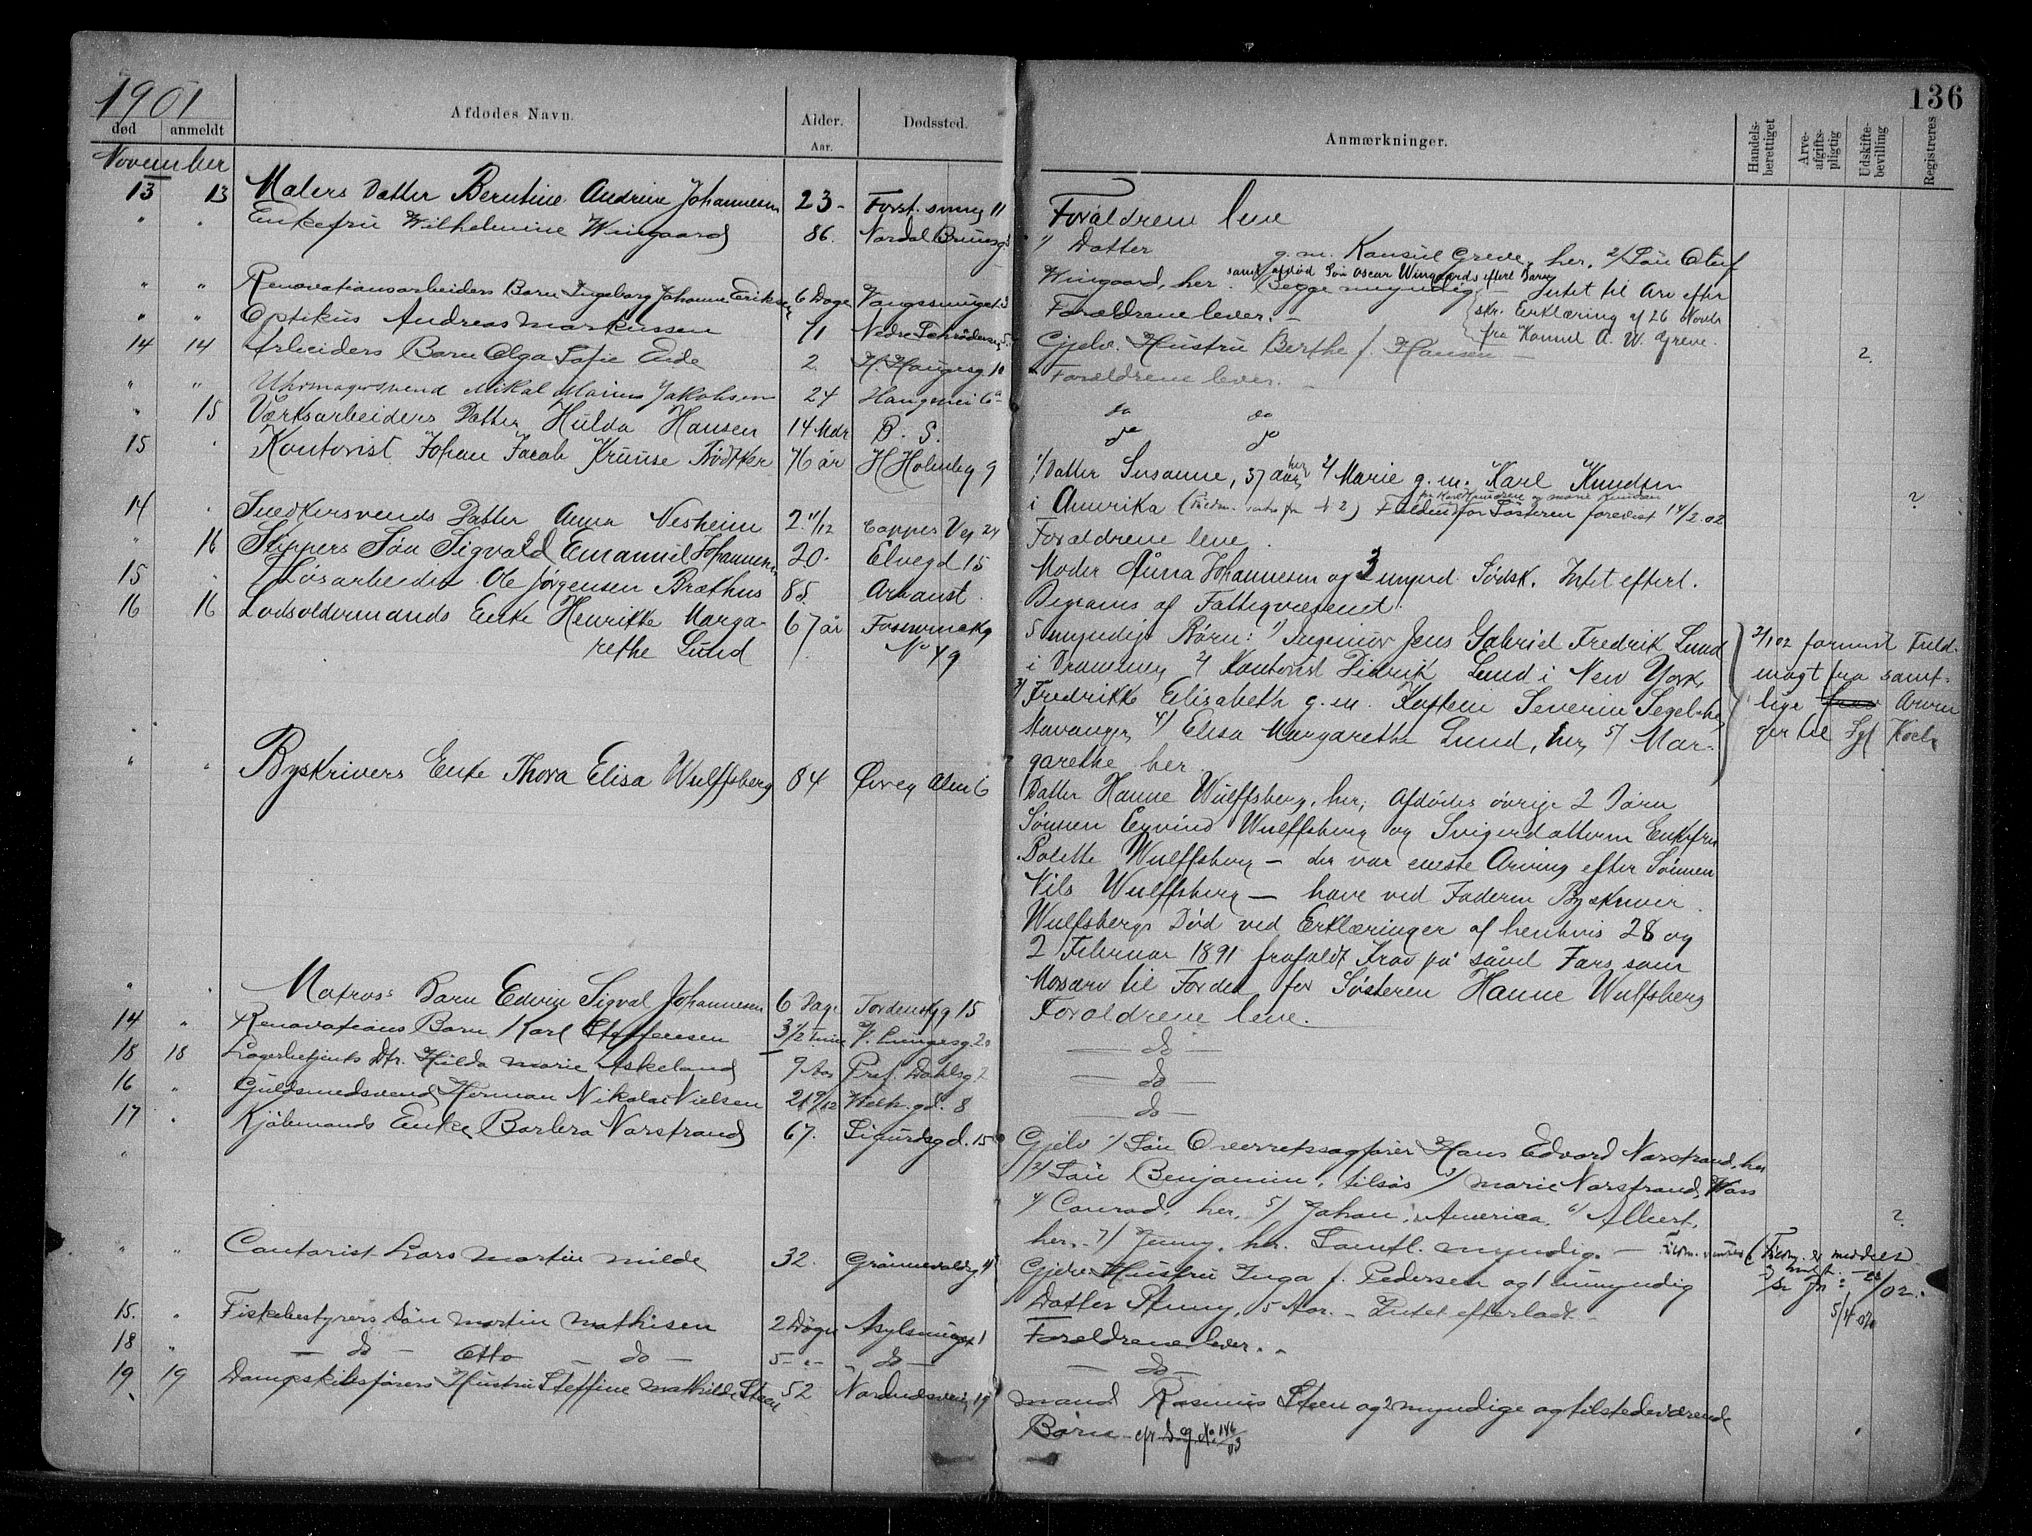 1901
136
død anmeldt Afdødes Navn. Alder. Aar. Dødssted. Anmærkninger. Handels-berettiget Arve-afgifts-pligtig Udskifte-bevilling Registreres
November
13 13 Malers Datter Berntine Andrine Johannesen 23 - Forst. smug 11 Forældrene leve
" " Enkefru Wilhelmine Wingaard 86. Nordal Brunsg 1) Datter g. m. Konsul Greve, her, 2) Søn Oluf
Wingaard, her. samt afdød Søn Oscar Wingaards efterl Børn Begge myndig. - Intet til Arv efter
skr. Erklæring af 26 Novbr
fra Konsul A. W. Greve.
" " Renovationsarbeiders Barn Ingeborg Johanne Eriksen 6 Dage Vangssmuget 3 Forældrene lever. -
" " Optikus Andreas Markussen 71 Nedre 5 Gjelv. Hustru Berthe f. Hansen - 2.
14 14 Arbeiders Barn Olga Sofie Eide 2. H. Haugesg. 10 Forældrene lever. -
" " Uhrmagersvend Mikal Marius Jakobsen 24 Haugevei 6a do do
" 15 Værksarbeiders Datter Hulda Hansen 14 Mdr B. S. do do
15 " Kontorist Johan Jacob Kruuse Bødtker 76 år H Holmbg 9 1) Datter Susanne, 37 aar, her 2) Marie g. m. Karl Knudsen
i Amerika (Fuldm. ventes fra No 2) Fuldm for Søsteren forevist 14/2.02 ?
14 " Snedkersvends Datter Anna Nesheim 2 11/12 Cappes Vej 24 Forældrene leve.
" 16 Skippers Søn Sigvald Emanuel Johannesen 20. Elvegd 15 Moder Anna Johannesen og 3 mynd. Sødsk. Intet efterl.
15 " Løsarbeider Ole Jørgensen Bræthus 85. Arbanst. Begraves af Fattigvæsenet.
16 16 Lodsoldermands Enke Henrikke Marga- 67 år Foswinckg 5 myndige Børn: 1) Ingeniør Jens Gabriel Fredrik Lund
rethe Lund No 49 i Drammen, 2) Kontorist Didrik Lund i New York,
3) Fredrikke Elisabeth g. m. Kaptein Severin Segelcke
Stavanger, 4) Elisa Margarethe Lund, her, 5) Mar-
garethe her.
2/1 02 forevist Fuld-
magt fra samt-
lige Arvin
ger til Sgf Koch
" " Byskrivers Enke Thora Elisa Wulffsberg 84 Øvreg Alm 6 Datter Hanne Wulffsberg, her, Afdødes øvrige 2 Børn
Sønnen Eyvind Wulffsberg og Svigerdatteren Enkefru
Bolette Wulffsberg - der var eneste Arving efter Sønnen
Nils Wulffsberg - have ved Faderen Byskriver
Wulfsbergs Død ved Erklæringer af henhvis 28 og
2 Februar 1891 frafaldt Krav på såvel Fars som
Morsarv til Fordel for Søsteren Hanne Wulfsberg
" " Matros: Barn Edvin Sigval Johannesen 6 Dage Tordenskg 15 Forældrene leve.
14 " Renovations Barn Karl Steffensen 3 1/2 Time V. Lungesg. 20 — do —
18 18 Lagerbetjents Dtr. Hilda Marie Askeland 9 Aar Prof. Dahlsg 2 — do —
16 " Guldsmedsvend Herman Nikolai Nielsen 21 9/12 Welh. gd. 8 — do —
17 " Kjøbmands Enke Barbra Narstrand 67. Sigurdsgd. 15 Gjelv 1) Søn Overretssagfører Hans Edvard Narstrand, her
2) Søn Benjamin, tilsøs 3) Marie Narstrand, Woss
4) Conrad, her, 5) Johan, i Amerika, 6) Albert,
her, 7) Jenny, her. Samtl. myndig. - ?
" " Contorist Lars Martin Milde 32. Grønnevoldsg 4 Gjelv. Hustru Inga f. Pedersen og 1 umyndig
Datter Fanny, 5 Aar. - Intet efterladt. 5/4 02
15. " Fiskebestyrers Søn Martin Mathisen 2 Døgn Asylsmuget 1 Forældrene lever.
18 " — do — Otto — do — 5 - " - do — — do —
19 19 Dampskibsførers Hustru Steffine Mathilde Steen 52 Nordnesveien 19 Mand Rasmus Steen og 2 myndige og tilstedeværende
Børn cfr S. g. No 146/03